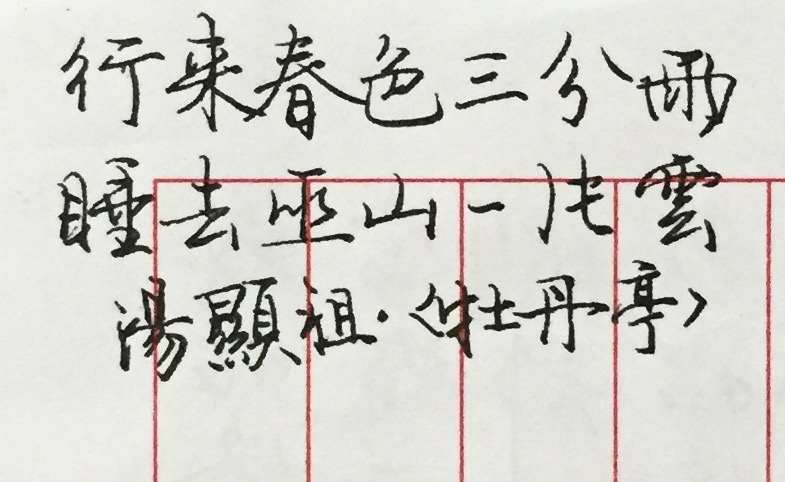 行来春色三分雨
睡去巫山一片雲
湯顯祖·《牡丹亭》